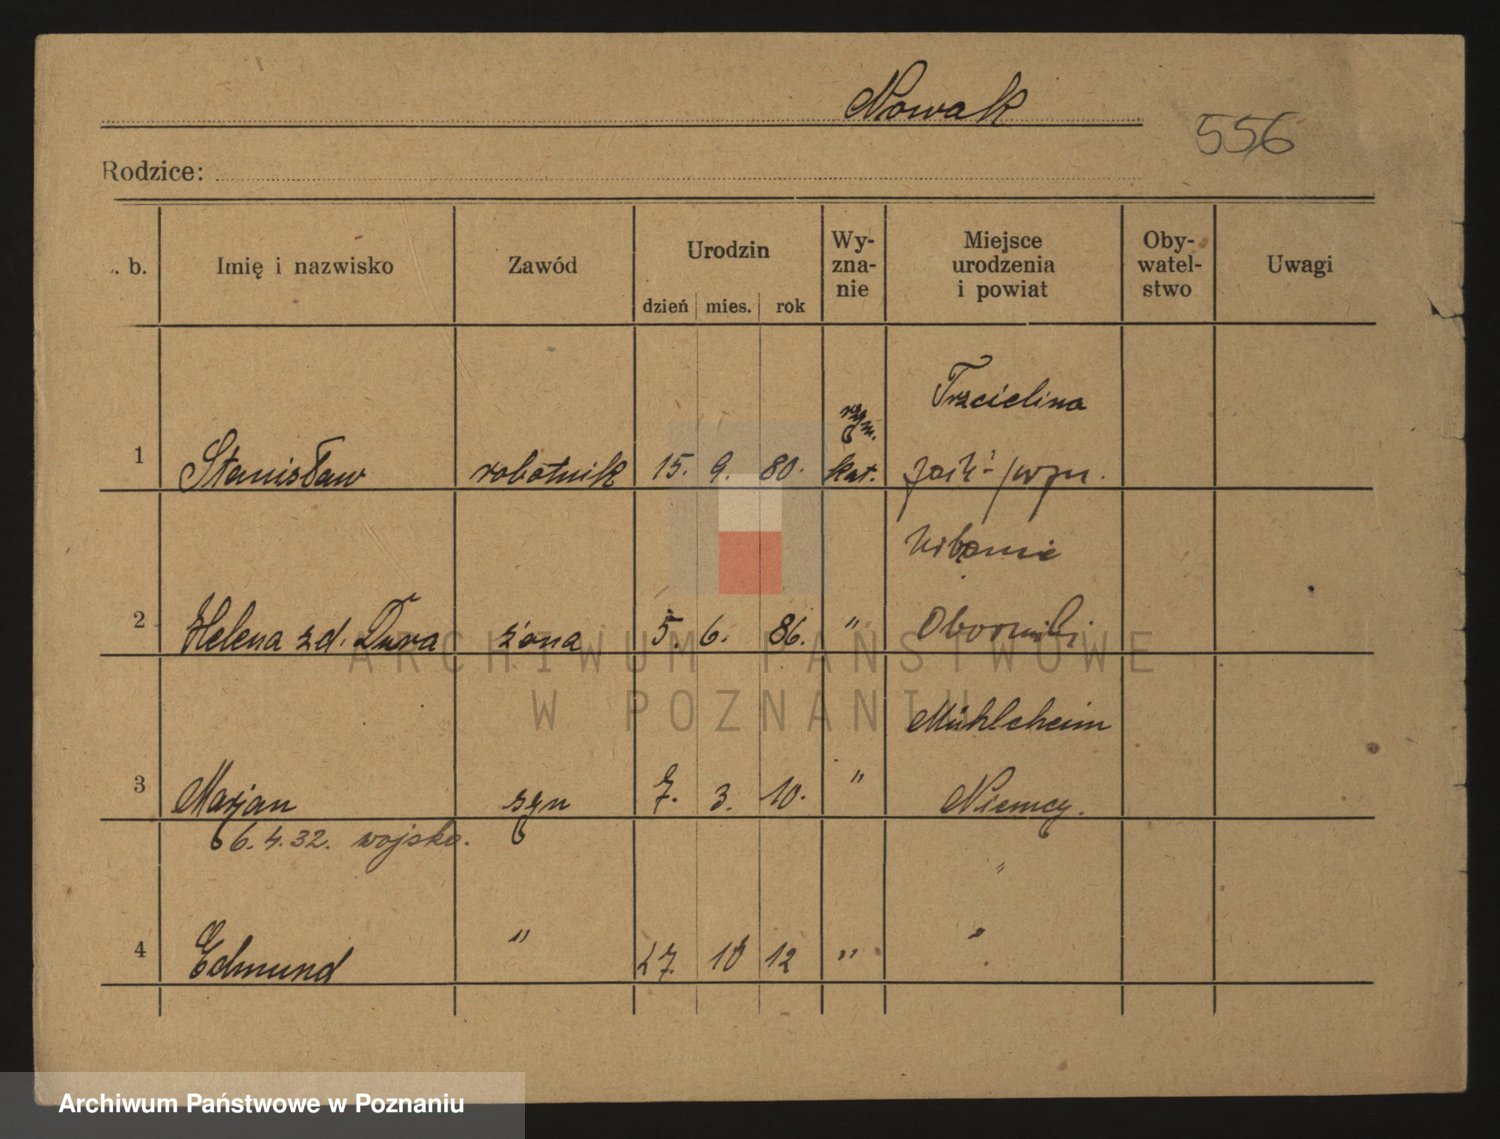 Nowak
556
Rodzice:
b. Imię i nazwisko Zawód Urodzin dzień mies. rok Wy-zna-nie Miejsce urodzenia i powiat Oby-watel-stwo Uwagi
Trzcielina
rzym.
1 Stanisław robotnik 15. 9. 80. kat.
2 Helena zd. Dura żona 5. 6. 86. " Oborniki
Mühlcheim
3 Marjan syn 7. 3. 10. " Niemcy.
6.4.32. wojsko.
"
4 Edmund " 27. 10 12 " "
ARCHIWUM PAŃSTWOWE
W POZNANIU
Archiwum Państwowe w Poznaniu